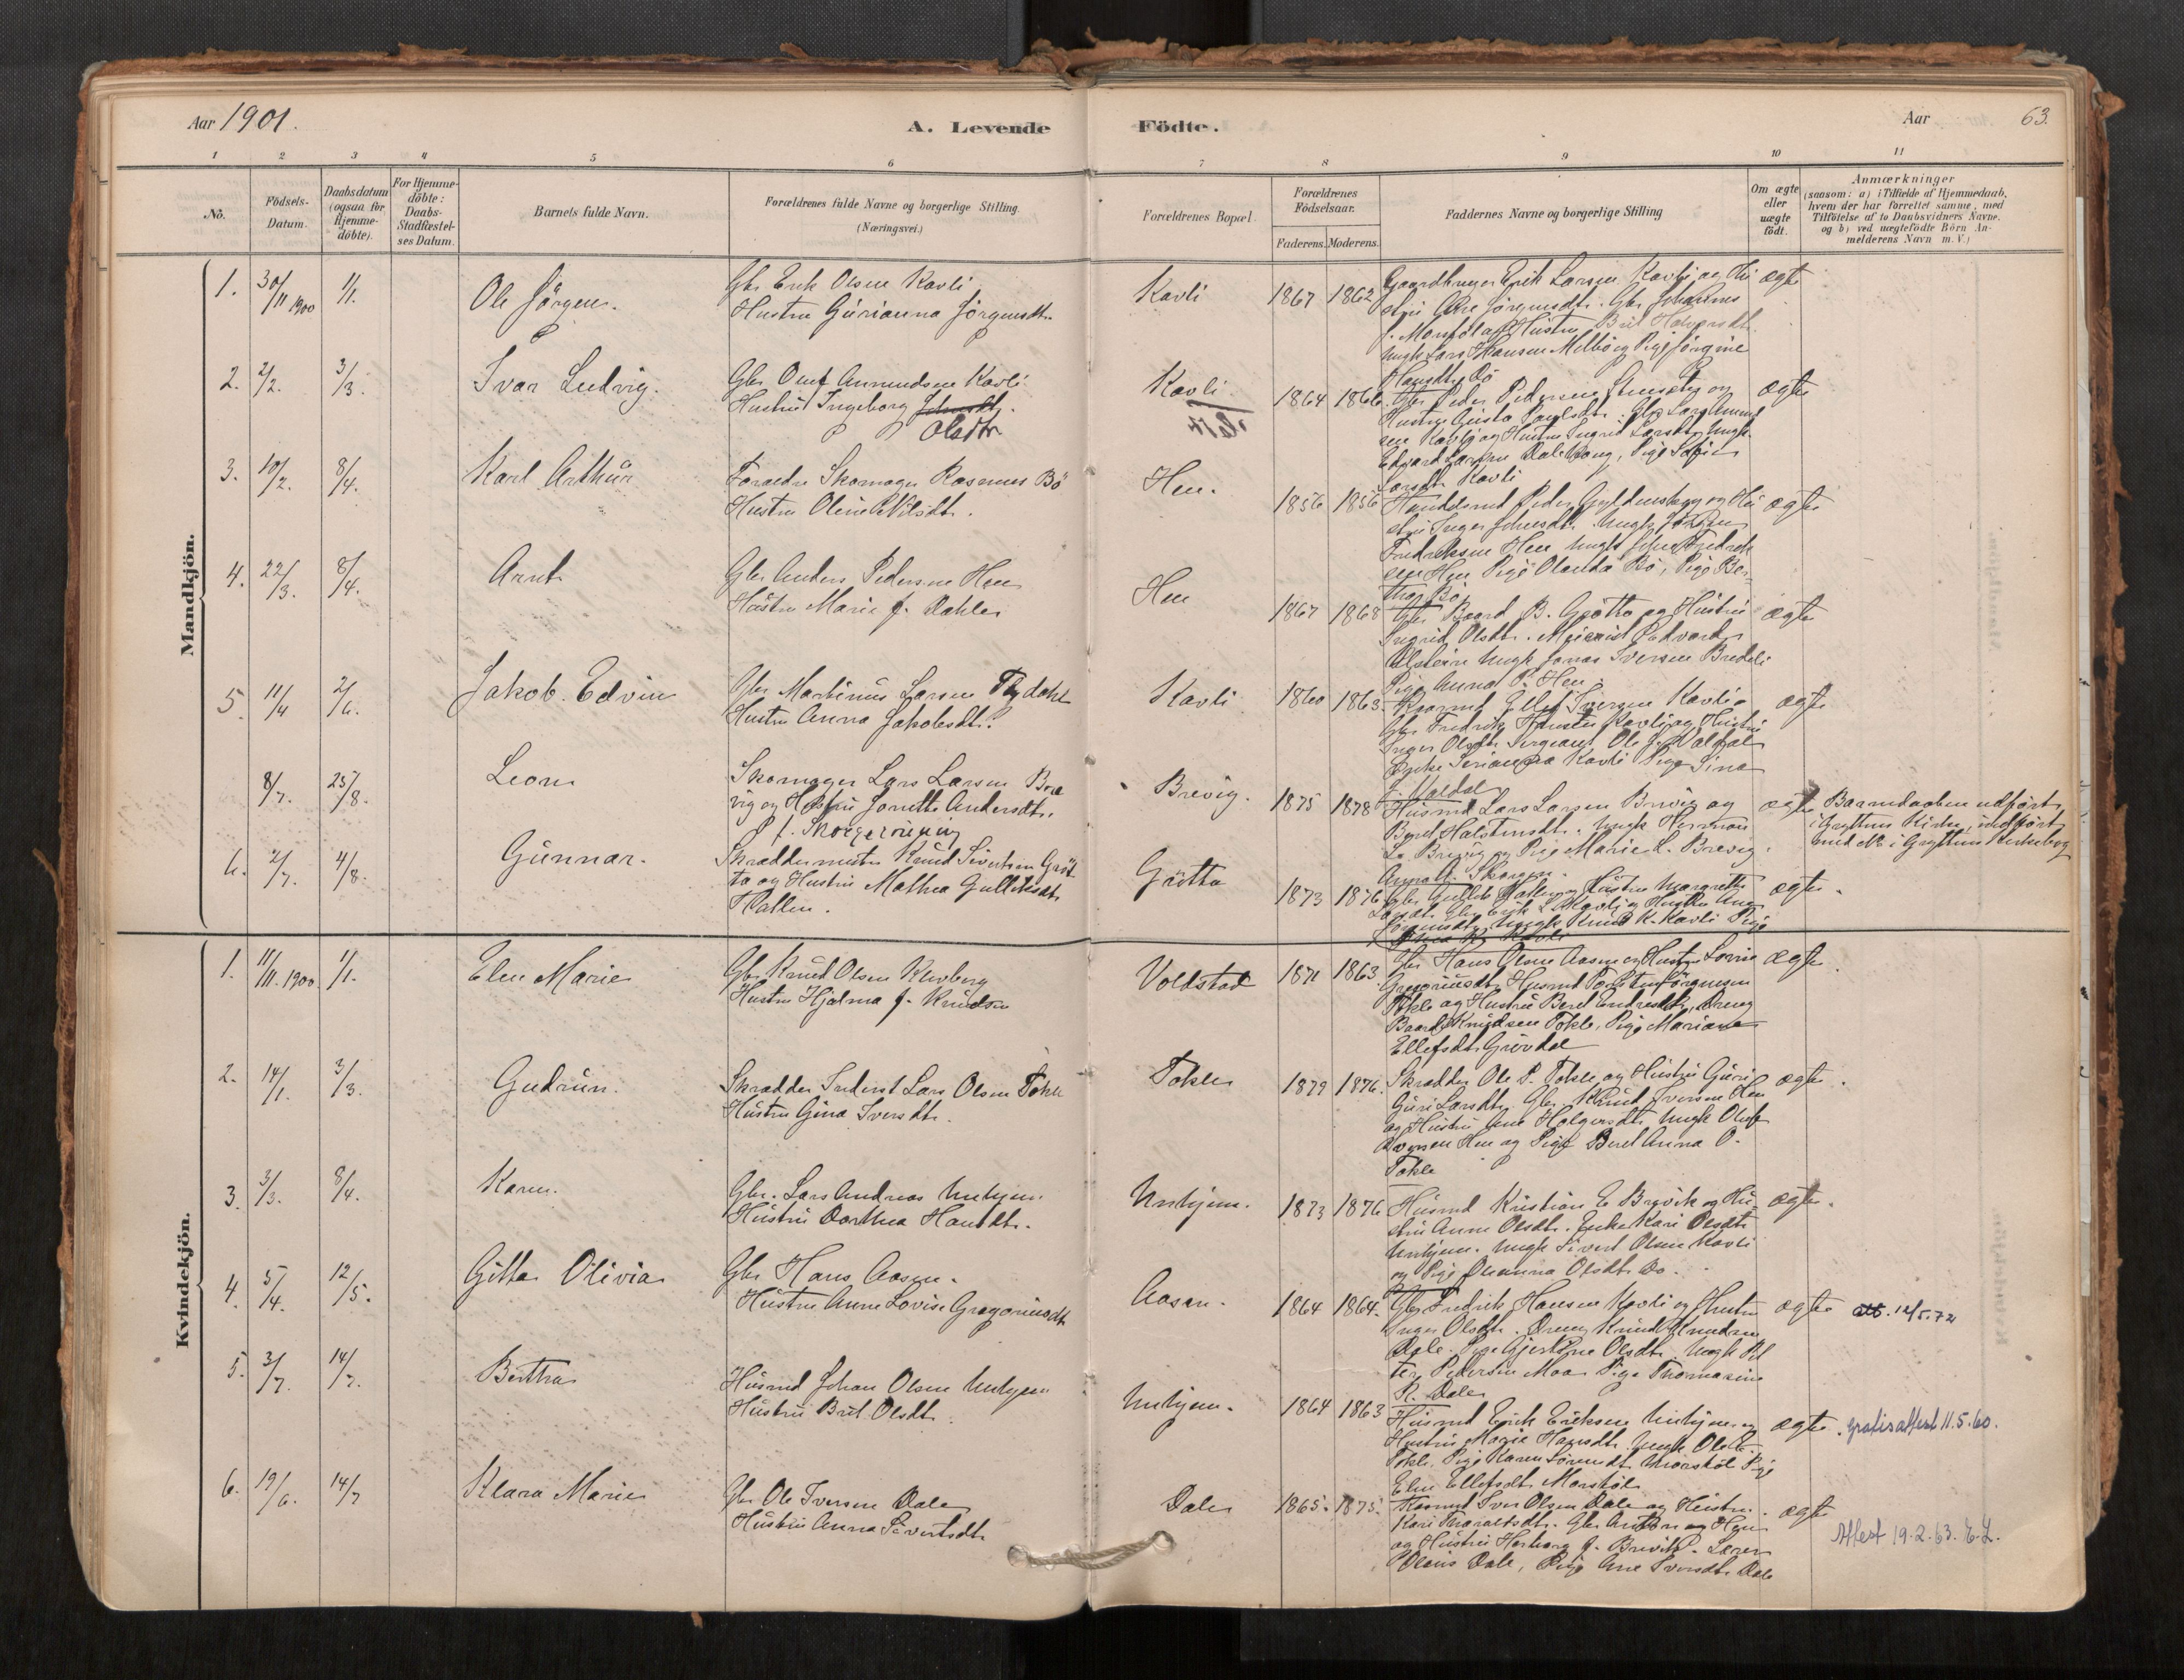 Aar 1901.
A. Levende Födte.
Aar
63.
1
2
3
4
5
6
7
8
9
10
11
No.
Födsels-
Datum.
Daabsdatum
(ogsaa for
Hjemme-
döbte).
For Hjemme-
döbte:
Daabs-
Stadfæstel-
ses Datum.
Barnets fulde Navn.
Forældrenes fulde Navne og borgerlige Stilling.
(Næringsvei.)
Forældrenes Bopæl.
Forældrenes
Födselsaar.
Faderens. Moderens.
Faddernes Navne og borgerlige Stilling
Om ægte
eller
uægte
födt.
Anmærkninger
(saasom: a) i Tilfælde af Hjemmedaab,
hvem der har forrettet samme, med
Tilföielse af to Daabsvidners Navne.
og b) ved uægtefödte Börn An-
melderens Navn m. V.)
Mandkjön.
1. 30/11 1900 1/1.
Ole Jörgen.
Gbr Erik Olsen Kavli
Hustru Gurianna Jörgensdtr.
Kavli
1867 1862
Gaardbruger Erik Larsen Kavli og Hu
stru Ane Jörgensdtr. Gbr Johannes
Hustru Brit
Ungk Lars Hansen og Pige Jörgine
Hansdtr Bö
ægte
2. 2/2. 3/3.
Ivar Ludvig.
Gbr Oluf Amundsen Kavli
Hustru Ingeborg Johnsdtr.
Olsdtr.
Kavli.
1864 1866.
Gbr Peder Pedersen og
Hustru Paulsdtr. Gbr Lars Amund
sen Kavli og Hustru Ingrid Larsdtr, Ungk.
Edvard Larsen Pige
Larsdtr Kavli
ægte
3. 10/2. 8/4.
Karl Arthur
Foraldre Skomager Rasmus Bö
Hustru Oline Nilsdtr.
Hen.
1856 1856
Peder Gyldenskog og Hu
stru Inger Johnsdtr. Ungk
Fredriksen Hen Ungk Fredrik
sen Hen Pige Olanda Bö, Pige Ber
tha Bö.
ægte
4. 22/3. 8/4.
Arnt
Gbr Anders Pedersen Hen
Hustru Marie f. Dahle
Hen
1867 1868
Gbr Baard B. Grötta og Hustru
Ingrid Olsdtr. Meierist Edvard
Ulstein Ungk Jonas Iversen Bredeli
Pige Anna P. Hen.
ægte
5. 11/4 2/6.
Jakob Edvin
Gbr Martinus Larsen
Hustru Anna Jakobsdtr.
Kavli
1860 1863.
Ellef Iversen Kavli
Gbr Fredrik Hansen Kavli og Hustru
Inger Olsdtr. Sergeant Ole J. Valdal
Enke Kavli Pige Sina
J. Valdal
ægte
8/7. 25/8.
Leon
Skomager Lars Larsen Bre
vig og Hustru Jonette Andersdtr.
Brevig.
1875 1878
Husmd Lars Larsen Brevig og
Beret Halstensdtr. Ungk Herman
L. Brevig og Pige Marie L. Brevig.
Anna
ægte
Barnedaaben udfört
i Gryttens Kirke, indfört
med No i Gryttens Kirkebog
6. 2/7. 4/8.
Gunnar.
Skræddermester Knud Sivertsen Gröt
ta og Hustru Mathea Gulliksdtr
Hallen.
Grötta
1873 1876
Gbr Gullik Hallen og Hustru Margrethe
Larsdtr. Gbr Erik L. Kavli og Hustru Ane
Jörgensdtr, Ungk Knud K. Kavli Pige
ægte.
Kvindekjön.
1. 11/11. 1900. 1/1.
Elen Marie
Gbr Knud Olsen
Hustru Hjalma f. Knudsen
Voldstad
1871 1863
Gbr Hans Olsen Aasen og Hustru Lovise
Gregoriusdtr, Husmd Torsten Jörgensen
Tokle og Hustru Beret Endresdtr, Dreng
Baard Knudsen Tokle, Pige Mariane
Ellefsdtr Grövdal
ægte.
2. 14/1. 3/3.
Gudrun.
Skrædder Inderst Lars Olsen Tokle
Hustru Gina Iversdtr.
Tokle
1879 1876.
Skrædder Ole P. Tokle og Hustru Guri
Guri Larsdtr. Gbr. Knud Iversen Hen
og Hustru Ane Holgersdtr Ungk Oluf
Hen og Pige Beret Anna O.
Tokle
ægte.
3. 3/3. 8/4.
Karen.
Gbr. Lars Andreas Unhjem.
Hustru Dorthea Hansdtr.
Unhjem.
1873 1876
Husmd Kristian E Brevik og Hu-
stru Anne Olsdtr. Enke Kari Olsdtr
Unhjem. Ungk Sivert Olsen Kavli
og Pige Oleanna Olsdtr. Do.
ægte.
4. 5/4. 12/5.
Gitta Olivia
Gbr Hans Aasen.
Hustru Anne Lovise Gregoriusdtr
Aasen.
1864 1864.
Gbr Fredrik Hansen Kavli og Hustru
Inger Olsdtr. Dreng Knud Knudsen
Dale. Pige Gjertine Olsdtr. Ungk Pet
ter Pedersen Moa Pige Thomasine
K. Dale
ægte
att. 12/5.72
5. 3/7. 14/7.
Bertha
Husmd Johan Olsen Unhjem
Hustru Brit Olsdtr.
Unhjem.
1864 1863
Husmd Erik Eriksen Unhjem og
Hustru Marie Hansdtr. Ungk Ole E.
Tokle, Pige Karen Pige
Elen Ellefsdtr Marstöl
ægte.
gratisattest 11.5.60.
6. 19/6. 14/7
Klara Marie
Gbr Ole Iversen Dale
Hustru Anna Sivertsdtr
Dale
1865. 1875.
Iver Olsen Dale og Hustru
Kari Gbr Anton Hen
og Hustru f. Brevik. Lærer
Dale, Pige Ane Iversdtr Dale
ægte
Attest 19.2.63. E.L.